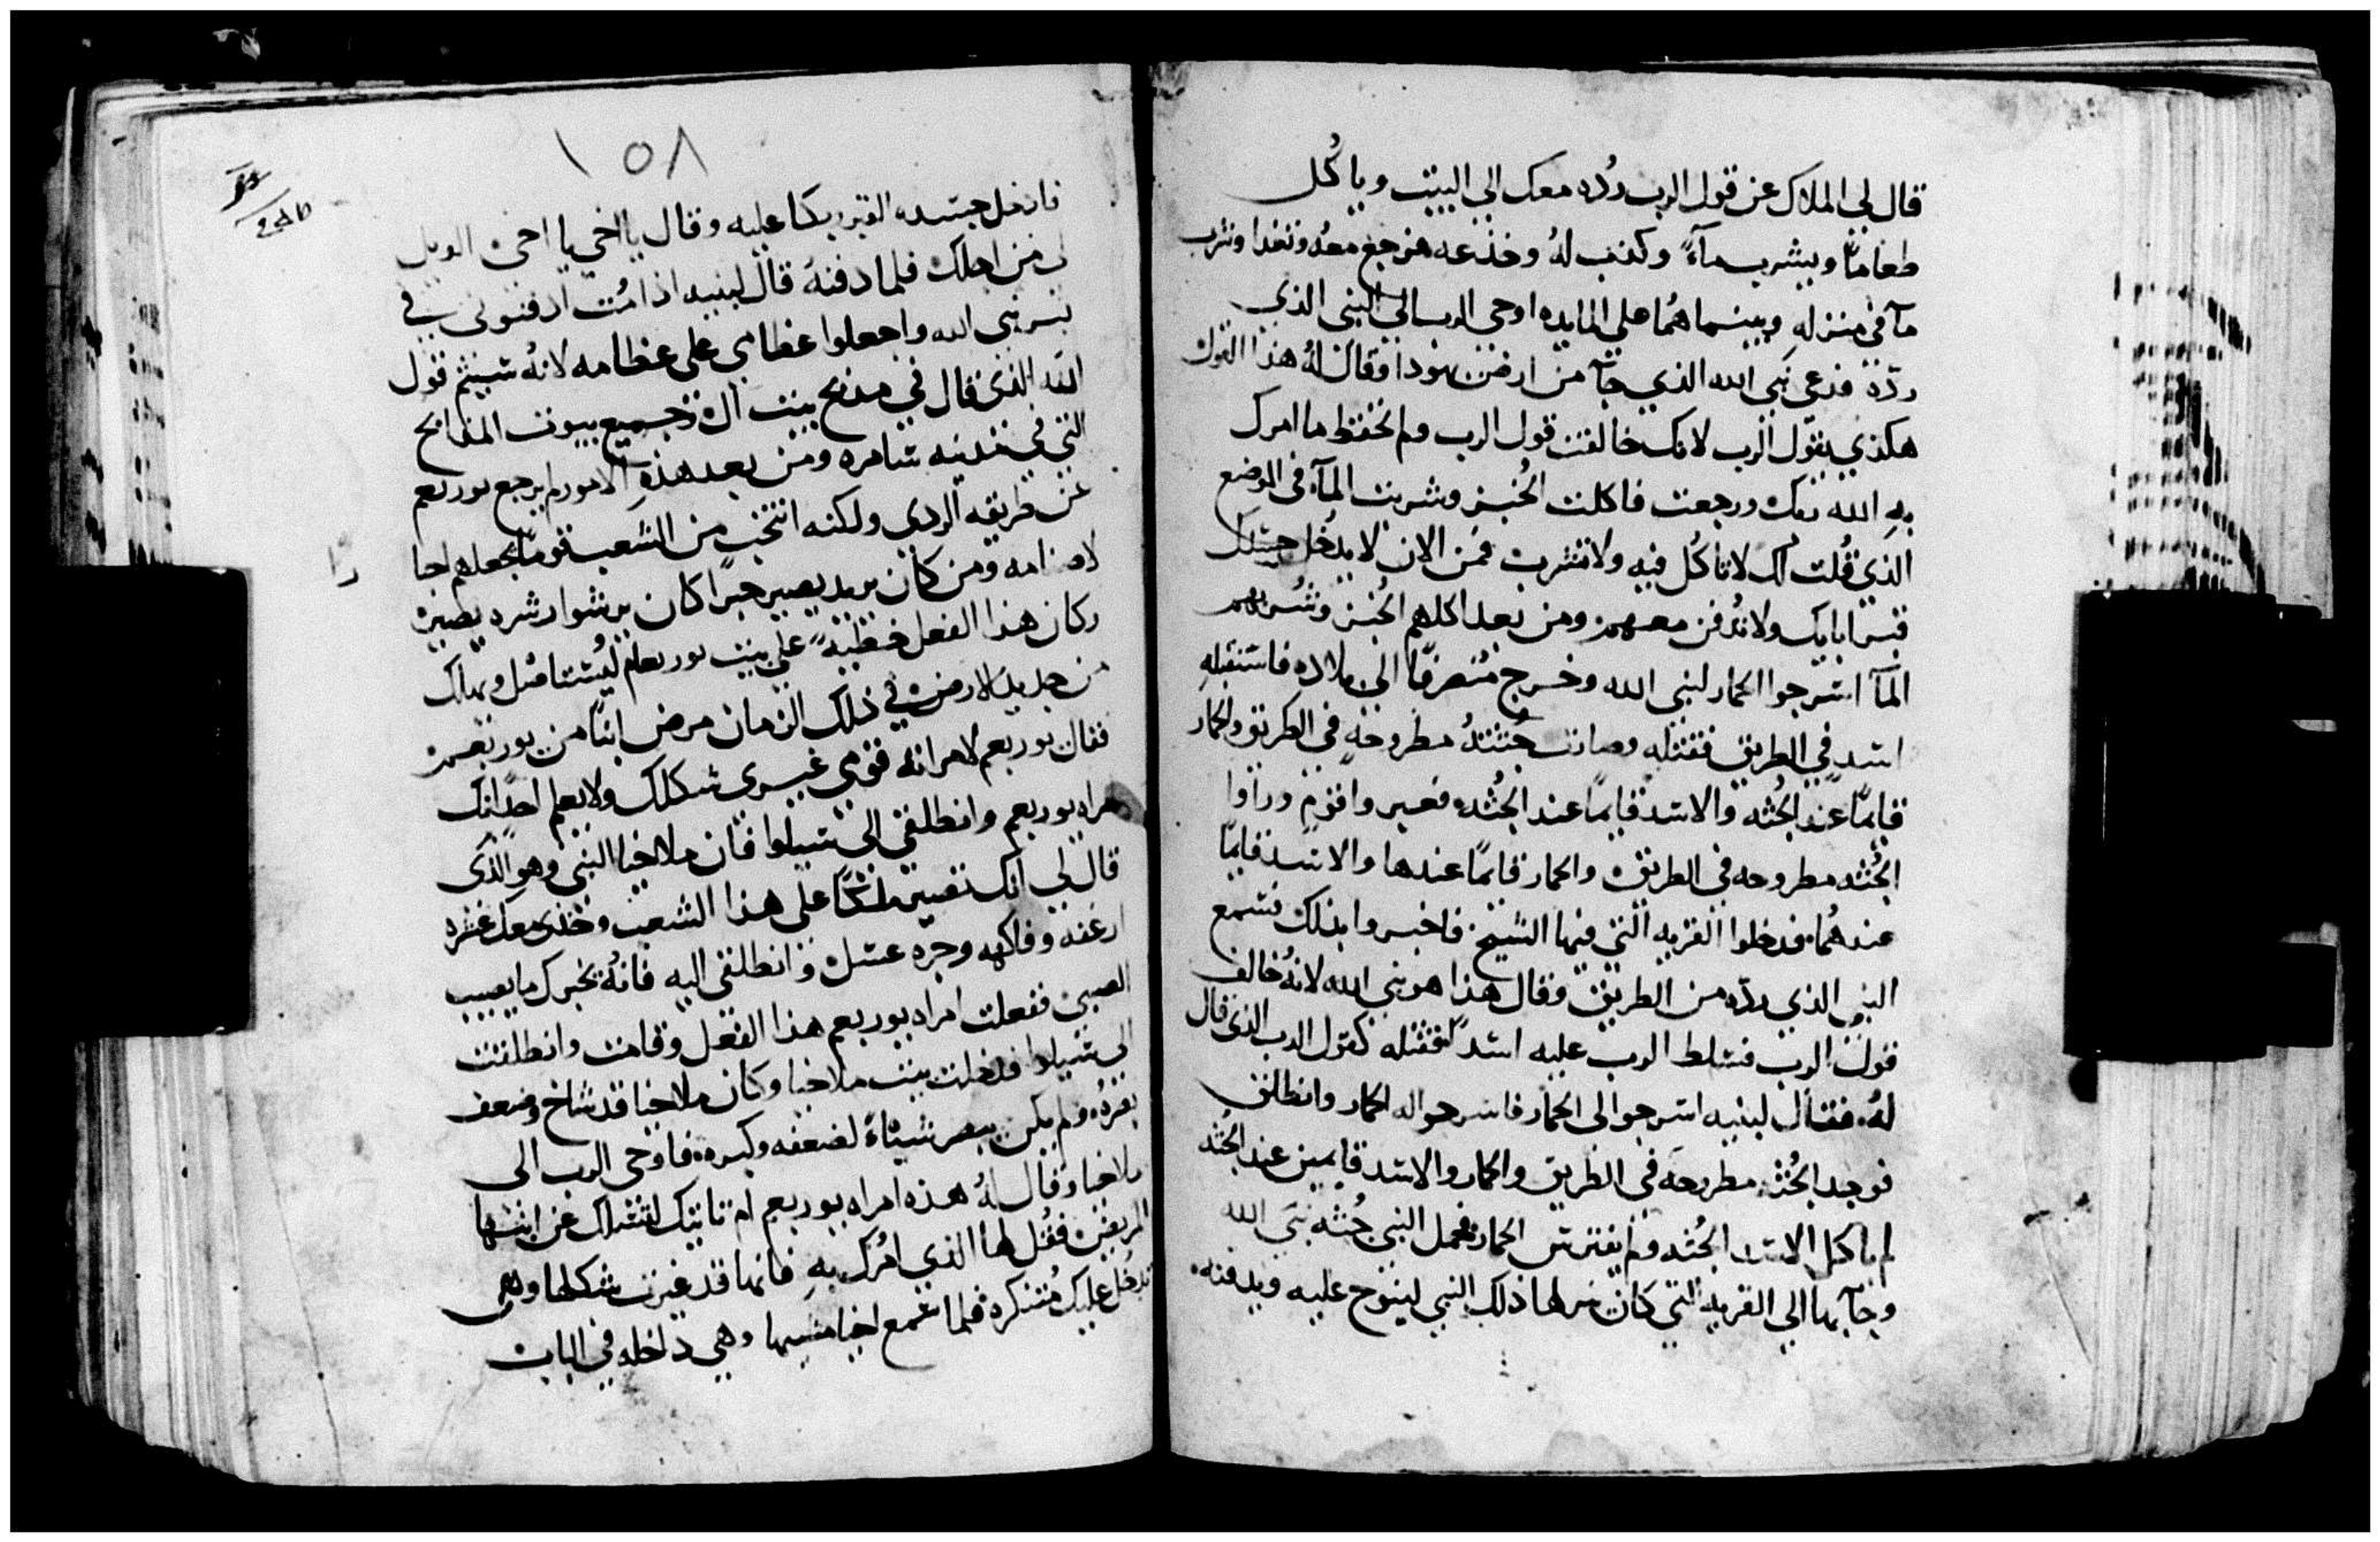 قال لي الملاك عن قول الرب رده معك الي البيت وياكل
طعاماً ويشرب مآءً وكذب لهُ وخدعه فرجع معهُ وتغدا وشرب
مآ في منزله وبينما هُما علي المايده اوحي الرب الي النبي الذي
ردّه فدعي نبي الله الذي جآ من ارض يهودا وقال لهُ هذا القول
هكذي يقول الرب لانك خالفت قول الرب ولم تحفظ ما امرك
به الله ربك ورجعت فاكلت الخُبز وشربت المآ في الموضع
الذي قُلت لك لا تاكُل فيه ولا تشرب فمن الان لا يدخُل جسدك
قبر ابايك ولا تُدفن معهم ومن بعد اكلهم الخُبز وشُربهم
المآ اسرجوا الحمار لنبي الله وخرج مُنصرفًا الي بلاده فاستقبله
اسد في الطريق فقتله وصارت جُثتهُ مطروحه في الطريق والحمار
قايمًا عند الجُثه والاسد قايمًا عند الجُثه فعبروا قوم وراوا
الجُثه مطروحه في الطريق والحمار قايمًا عندها والاسد قايمًا
عندهُما فدخلوا القريه التي فيها الشيخ فاخبروا بذلك فسمع
النبي الذي ردّه من الطريق وقال هذا هو نبي الله لانهُ خالف
قول الرب فسلط الرب عليه اسدًا فقتله كقول الرب الذي قال
لهُ فقال لبنيه اسرجوا لي الحمار فاسرجوا له الحمار وانطلق
فوجد الجُثه مطروحه في الطريق والحمار والاسد قايمين عند الجُثه
لم ياكل الاسد الجُثه ولم يفترس الحمار فحمل النبي جُثه نبي الله
وجآ بها الي القريه التي كان نزلها ذلك النبي لينوح عليه ويدفنه
١٥٨
فادخل جسده القبر وبكا عليه وقال يا اخي يا اخي الويل
لي من اجلك فلما دفنهُ قال لبنيه اذا مُت ادفنوني في
قبر نبي الله واجعلوا عظامي علي عظامه لانهُ سيتم قول
الله الذي قال في مدبح بيت ال وجميع بيوت المدابح
التي في مدينه شامره ومن بعد هذه الامور لم يرجع يوربعم
عن طريقه الردي ولكنه انتخب من الشعب قومًا فجعلهم احبا
لاصنامه ومن كان يريد يصير حبرًا كان يرشوا رشوه يصير
وكان هذا الفعل خطيةً علي بيت يوربعام ليُستاصل ويهلك
من جديد الارض في ذلك الزمان مرض ابيا بن يوربعم
فقال يوربعم لامراته قومي غيري شكلك ولا يعلم احدًا انك
امراه يوربعم وانطلقي الي شيلوا فان ملاخيا النبي وهو الذي
قال لي انك تصير ملكًا علي هذا الشعب وخذي معك عشره
ارغفه وفاكهه وجره عسل وانطلقي اليه فانهُ يخبرك ما يصيب
الصبي ففعلت امراه يوربعم هذا الفعل وقامت وانطلقت
الي شيلوا فدخلت بيت ملاخيا وكان ملاخيا قد شاخ وضعف
بصرهُ ولم يكن يبصر شيئاً لضعفه وكبره فاوحي الرب الي
ملاخيا وقال لهُ هذه امراه يوربعم تاتيك لتسالك عن ابنها
المريض فقُل لها الذي امُرك به فانها قد غيرت شكلها وهي
تدخُل عليك مُتنكره فلما سمع اخيا مشيها وهي داخله في الباب